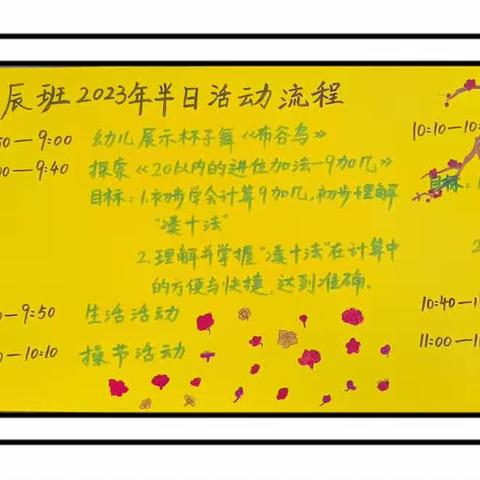 辰班2023年半日活动流程
50—9:00 幼儿展示杯子舞《布谷鸟》
00—9:40 探索《20以内的进位加法—9加几》
目标：1.初步学会计算9加几，初步理解
“凑十法”
2.理解并掌握“凑十法”在计算中
的方便与快捷，达到准确。
—9:50 生活活动
—10:10 操节活动
10:10—10:
目标：1
2
10:40—1
11:00—11